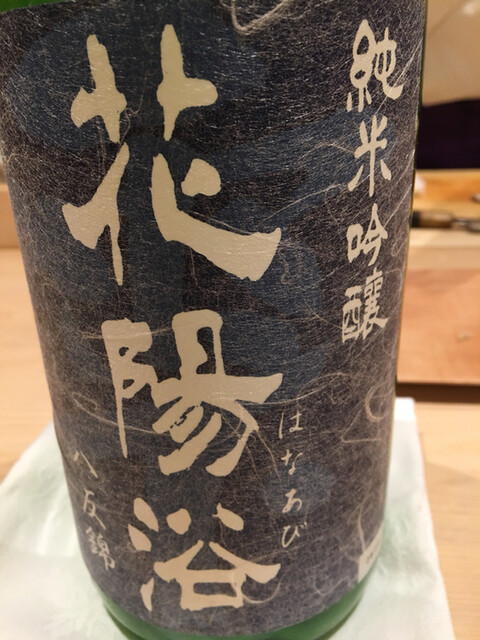 純米吟醸
花陽浴
はなあび
八反錦